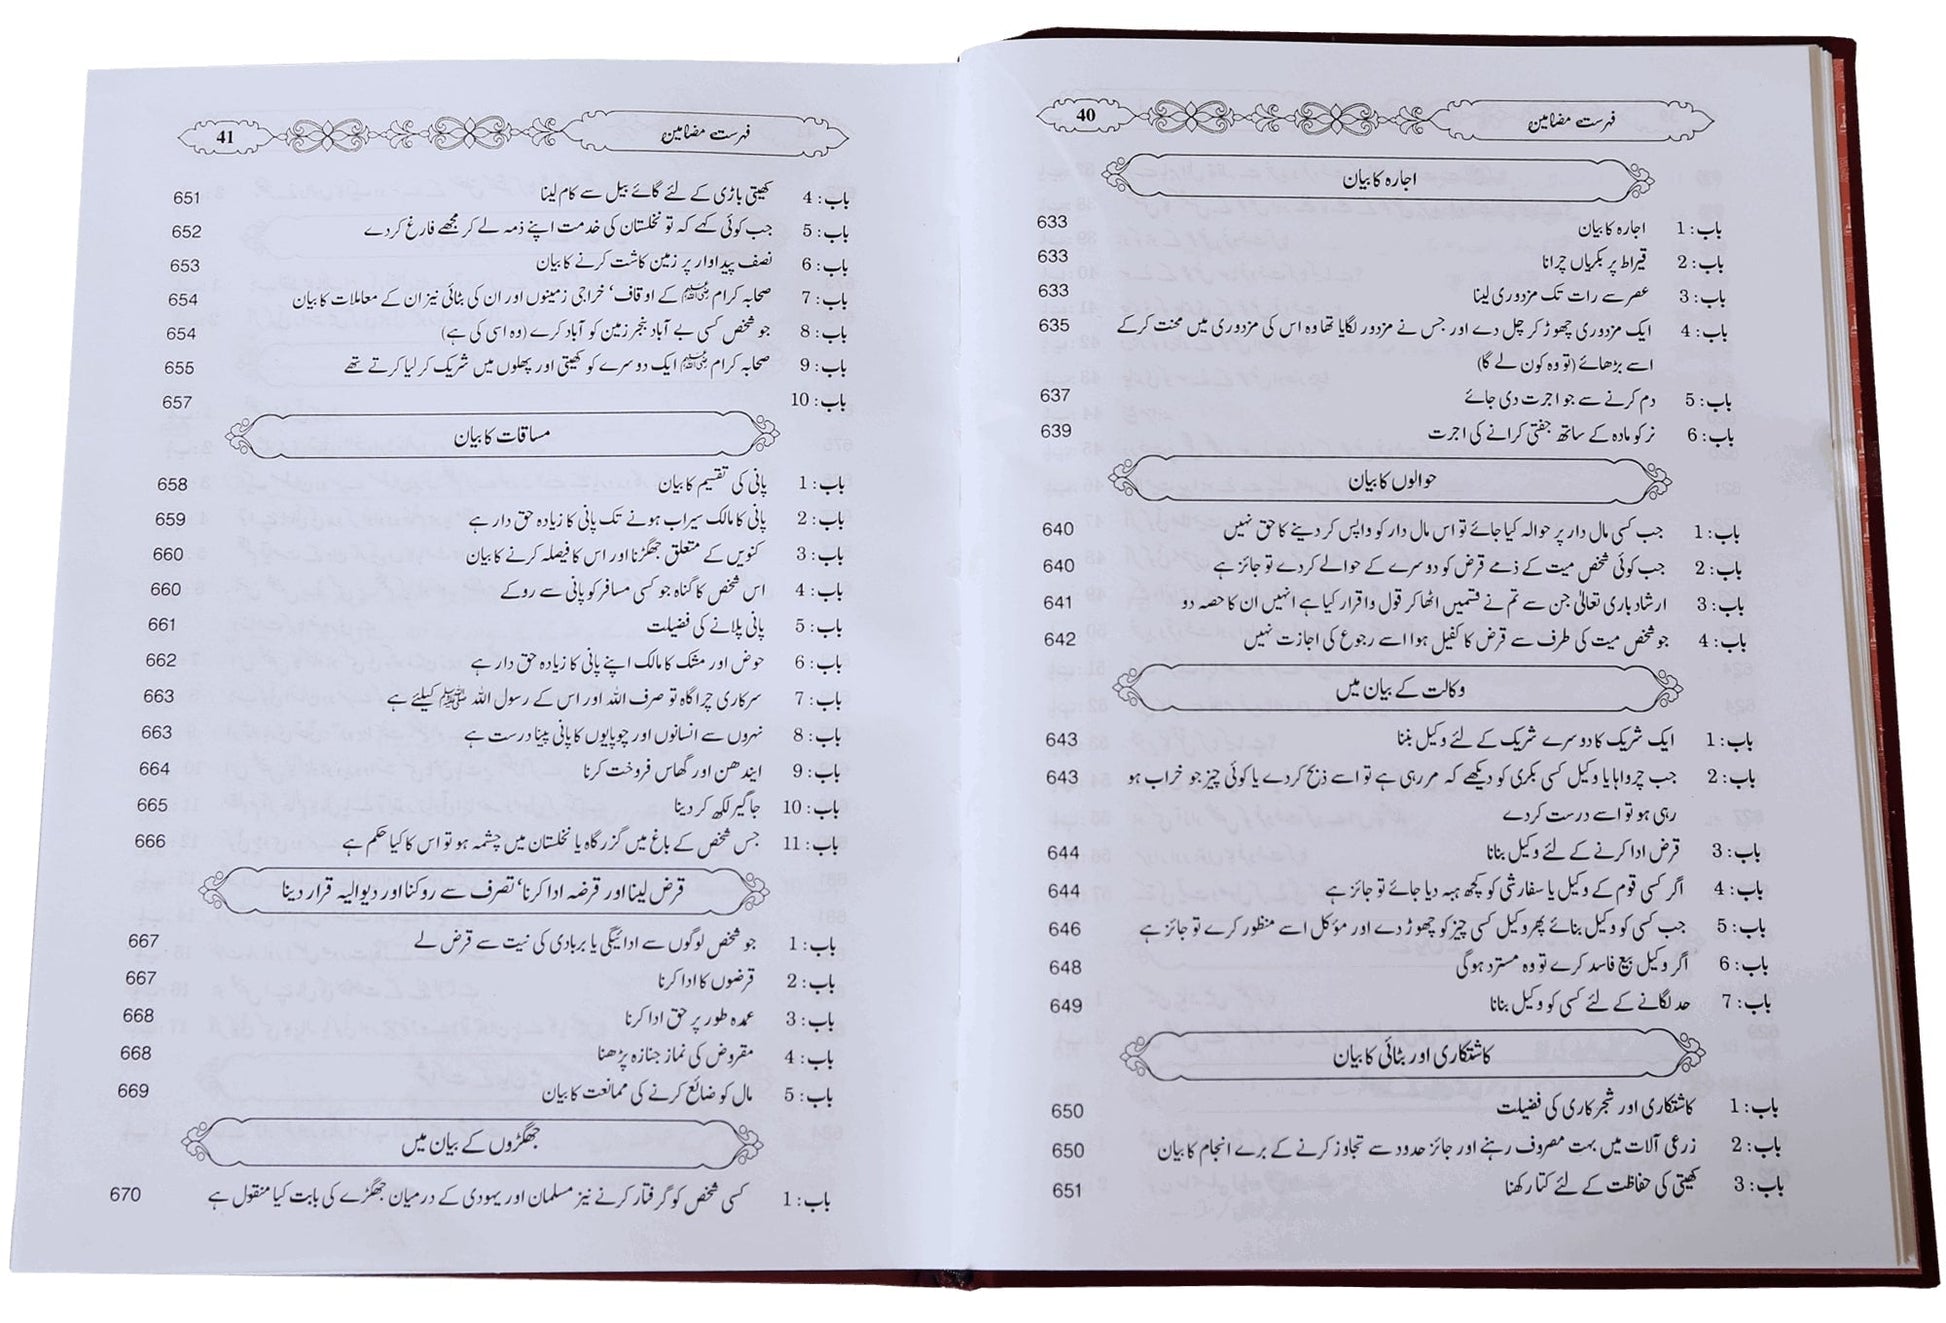 فہرست مضامین 40
اجارہ کا بیان
باب: 1 اجارہ کا بیان 633
باب: 2 قیراط پر بکریاں چرانا 633
باب: 3 عصر سے رات تک مزدوری لینا 633
باب: 4 ایک مزدوری چھوڑ کر چل دے اور جس نے مزدور لگایا تھا وہ اس کی مزدوری میں محنت کر کے 635
اسے بڑھائے (تو وہ کون لے گا)
باب: 5 دم کرنے سے جو اجرت دی جائے 637
باب: 6 نر کو مادہ کے ساتھ جفتی کرانے کی اجرت 639
حوالوں کا بیان
باب: 1 جب کسی مال دار پر حوالہ کیا جائے تو اس مال دار کو واپس کر دینے کا حق نہیں 640
باب: 2 جب کوئی شخص میت کے ذمے قرض کو دوسرے کے حوالے کر دے تو جائز ہے 640
باب: 3 ارشاد باری تعالیٰ جن سے تم نے قسمیں اٹھا کر قول و اقرار کیا ہے انہیں ان کا حصہ دو 641
باب: 4 جو شخص میت کی طرف سے قرض کا کفیل ہوا اسے رجوع کی اجازت نہیں 642
وکالت کے بیان میں
باب: 1 ایک شریک کا دوسرے شریک کے لئے وکیل بننا 643
باب: 2 جب چرواہا یا وکیل کسی بکری کو دیکھے کہ مر رہی ہے تو اسے ذبح کر دے یا کوئی چیز جو خراب ہو 643
رہی ہو تو اسے درست کر دے
باب: 3 قرض ادا کرنے کے لئے وکیل بنانا 644
باب: 4 اگر کسی قوم کے وکیل یا سفارشی کو کچھ ہبہ دیا جائے تو جائز ہے 644
باب: 5 جب کسی کو وکیل بنائے پھر وکیل کسی چیز کو چھوڑ دے اور مؤکل اسے منظور کرے تو جائز ہے 646
باب: 6 اگر وکیل بیع فاسد کرے تو وہ مسترد ہوگی 648
باب: 7 حد لگانے کے لئے کسی کو وکیل بنانا 649
کاشتکاری اور بٹائی کا بیان
باب: 1 کاشتکاری اور شجر کاری کی فضیلت 650
باب: 2 زرعی آلات میں بہت مصروف رہنے اور جائز حدود سے تجاوز کرنے کے برے انجام کا بیان 650
باب: 3 کھیتی کی حفاظت کے لئے کتا رکھنا 651
فہرست مضامین 41
باب: 4 کھیتی باڑی کے لئے گائے بیل سے کام لینا 651
باب: 5 جب کوئی کہے کہ تو نخلستان کی خدمت اپنے ذمہ لے کر مجھے فارغ کر دے 652
باب: 6 نصف پیداوار پر زمین کاشت کرنے کا بیان 653
باب: 7 صحابہ کرام ﷺ کے اوقاف، خراجی زمینوں اور ان کی بٹائی نیز ان کے معاملات کا بیان 654
باب: 8 جو شخص کسی بے آباد بنجر زمین کو آباد کرے (وہ اسی کی ہے) 654
باب: 9 صحابہ کرام ﷺ ایک دوسرے کو کھیتی اور پھلوں میں شریک کر لیا کرتے تھے 655
باب: 10 657
مساقات کا بیان
باب: 1 پانی کی تقسیم کا بیان 658
باب: 2 پانی کا مالک سیراب ہونے تک پانی کا زیادہ حق دار ہے 659
باب: 3 کنویں کے متعلق جھگڑنا اور اس کا فیصلہ کرنے کا بیان 660
باب: 4 اس شخص کا گناہ جو کسی مسافر کو پانی سے روکے 660
باب: 5 پانی پلانے کی فضیلت 661
باب: 6 حوض اور مشک کا مالک اپنے پانی کا زیادہ حق دار ہے 662
باب: 7 سرکاری چراگاہ تو صرف اللہ اور اس کے رسول اللہ ﷺ کیلئے ہے 663
باب: 8 نہروں سے انسانوں اور چوپایوں کا پانی پینا درست ہے 663
باب: 9 ایندھن اور گھاس فروخت کرنا 664
باب: 10 جاگیر لکھ کر دینا 665
باب: 11 جس شخص کے باغ میں گزر گاہ یا نخلستان میں چشمہ ہو تو اس کا کیا حکم ہے 666
قرض لینا اور قرضہ ادا کرنا، تصرف سے روکنا اور دیوالیہ قرار دینا
باب: 1 جو شخص لوگوں سے ادائیگی یا بربادی کی نیت سے قرض لے 667
باب: 2 قرضوں کا ادا کرنا 667
باب: 3 عمدہ طور پر حق ادا کرنا 668
باب: 4 مقروض کی نماز جنازہ پڑھنا 668
باب: 5 مال کو ضائع کرنے کی ممانعت کا بیان 669
جھگڑوں کے بیان میں
باب: 1 کسی شخص کو گرفتار کرنے نیز مسلمان اور یہودی کے درمیان جھگڑے کی بابت کیا منقول ہے 670